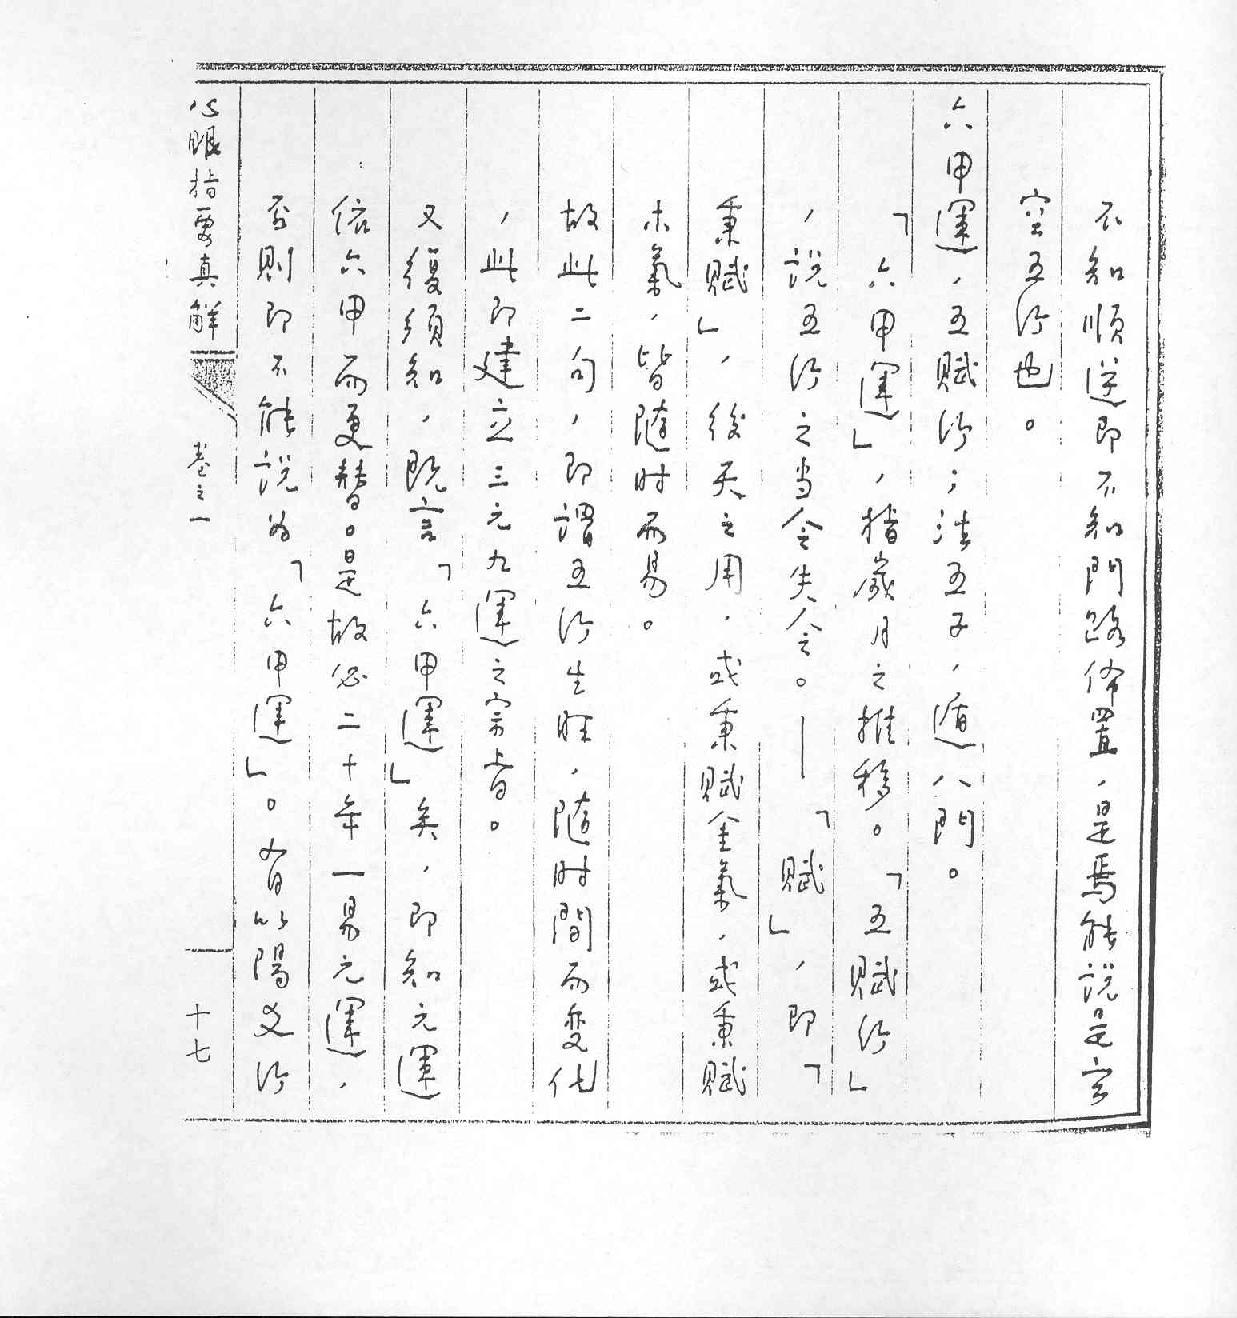 不知順逆即不知門路佈置，是焉能說是言
空五行也。
六甲運，五賦行；法五子，遁八門。
「六甲運」，指歲月之推移。「五賦行」
，說五行之当令失令。—「賦」，即「
秉賦」，後天之用，或秉賦金氣，或秉賦
木氣，皆隨时而易。
故此二句，即謂五行生旺，隨时間而变化
，此即建立三元九運之宗旨。
又復須知，既言「六甲運」矣，即知元運
依六甲而更替。是故必二十年一易元運，
否則即不能說为「六甲運」。有以陽爻行
心眼指要真解
卷之一
十七